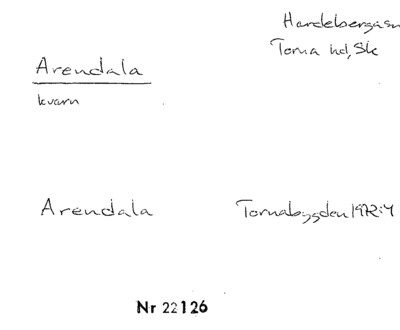 Hardebergasn
Torna hd, Sk
Arendala
kvarn
Arendala Tornabygden 1972:4
Nr 22126